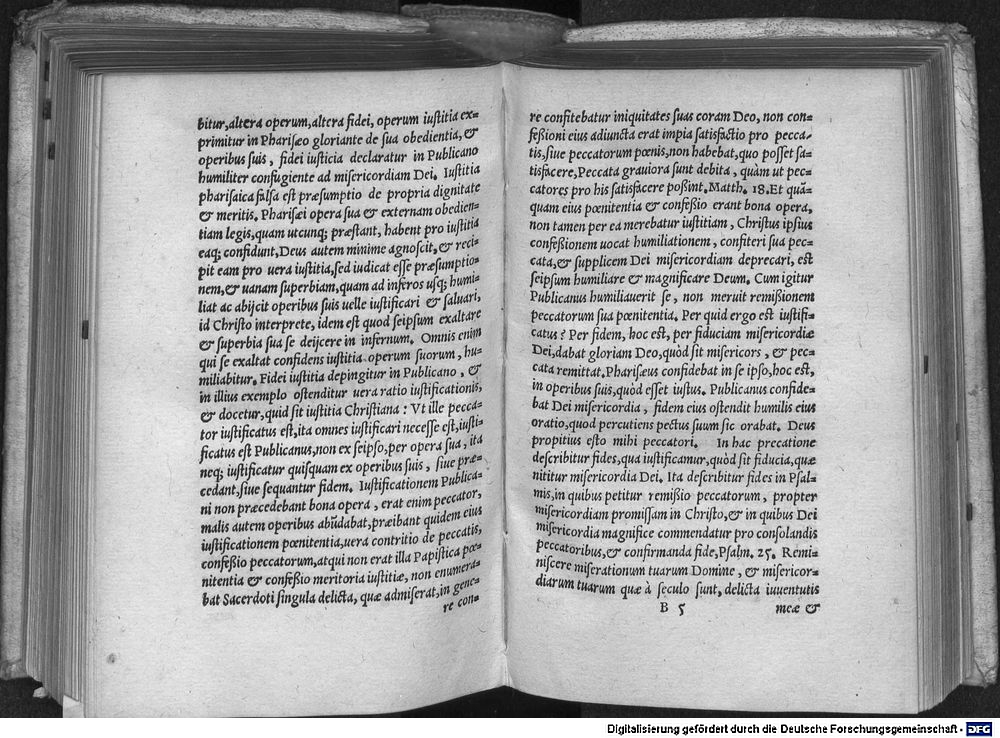 bitur, altera operum, altera fidei, operum iustitia ex=
primitur in Pharisæo gloriante de sua obedientia, &
operibus suis, fidei iusticia declaratur in Publicano
humiliter confugiente ad misericordiam Dei. Iustitia
pharisaica falsa est præsumptio de propria dignitate
& meritis. Pharisæi opera sua & externam obedien=
tiam legis, quam utcunq; præstant, habent pro iustitia
eaq; confidunt, Deus autem minime agnoscit, & reci=
pit eam pro uera iustitia, sed iudicat esse præsumptio=
nem, & uanam superbiam, quam ad inferos usq; humi=
liat ac abijcit operibus suis uelle iustificari & saluari,
id Christo interprete, idem est quod seipsum exaltare
& superbia sua se deijcere in infernum. Omnis enim
qui se exaltat confidens iustitia operum suorum, hu=
miliabitur. Fidei iustitia depingitur in Publicano, &
in illius exemplo ostenditur uera ratio iustificationis,
& docetur, quid sit iustitia Christiana: Vt ille pecca=
tor iustificatus est, ita omnes iustificari necesse est, iusti=
ficatus est Publicanus, non ex seipso, per opera sua, ita
neq; iustificatur quisquam ex operibus suis, siue præ=
cedant, siue sequantur fidem. Iustificationem Publica=
ni non præcedebant bona opera, erat enim peccator,
malis autem operibus abũdabat, præibant quidem eius
iustificationem pœnitentia, uera contritio de peccatis,
confeßio peccatorum, atqui non erat illa Papistica pœ=
nitentia & confeßio meritoria iustitiæ, non enumera=
bat Sacerdoti singula delicta, quæ admiserat, in gene=
re con=
re confitebatur iniquitates suas coram Deo, non con=
feßioni eius adiuncta erat impia satisfactio pro pecca=
tis, siue peccatorum pœnis, non habebat, quo posset sa=
tisfacere, Peccata grauiora sunt debita, quàm ut pec=
catores pro his satisfacere poßint. Matth. 18. Et quã=
quam eius pœnitentia & confeßio erant bona opera,
non tamen per ea merebatur iustitiam, Christus ipsius
confeßionem uocat humiliationem, confiteri sua pec=
cata, & supplicem Dei misericordiam deprecari, est
seipsum humiliare & magnificare Deum. Cum igitur
Publicanus humiliauerit se, non meruit remißionem
peccatorum sua pœnitentia. Per quid ergo est iustifi=
catus? Per fidem, hoc est, per fiduciam misericordiæ
Dei, dabat gloriam Deo, quòd sit misericors, & pec=
cata remittat. Pharisæus confidebat in se ipso, hoc est,
in operibus suis, quòd esset iustus. Publicanus confide=
bat Dei misericordia, fidem eius ostendit humilis eius
oratio, quod percutiens pectus suum sic orabat. Deus
propitius esto mihi peccatori. In hac precatione
describitur fides, qua iustificamur, quòd sit fiducia, quæ
nititur misericordia Dei. Ita describitur fides in Psal=
mis, in quibus petitur remißio peccatorum, propter
misericordiam promissam in Christo, & in quibus Dei
misericordia magnifice commendatur pro consolandis
peccatoribus, & confirmanda fide, Psalm. 25. Remi=
niscere miserationum tuarum Domine, & misericor=
diarum tuarum quæ à seculo sunt, delicta iuuentutis
B 5 meæ &
Digitalisierung gefördert durch die Deutsche Forschungsgemeinschaft - DFG